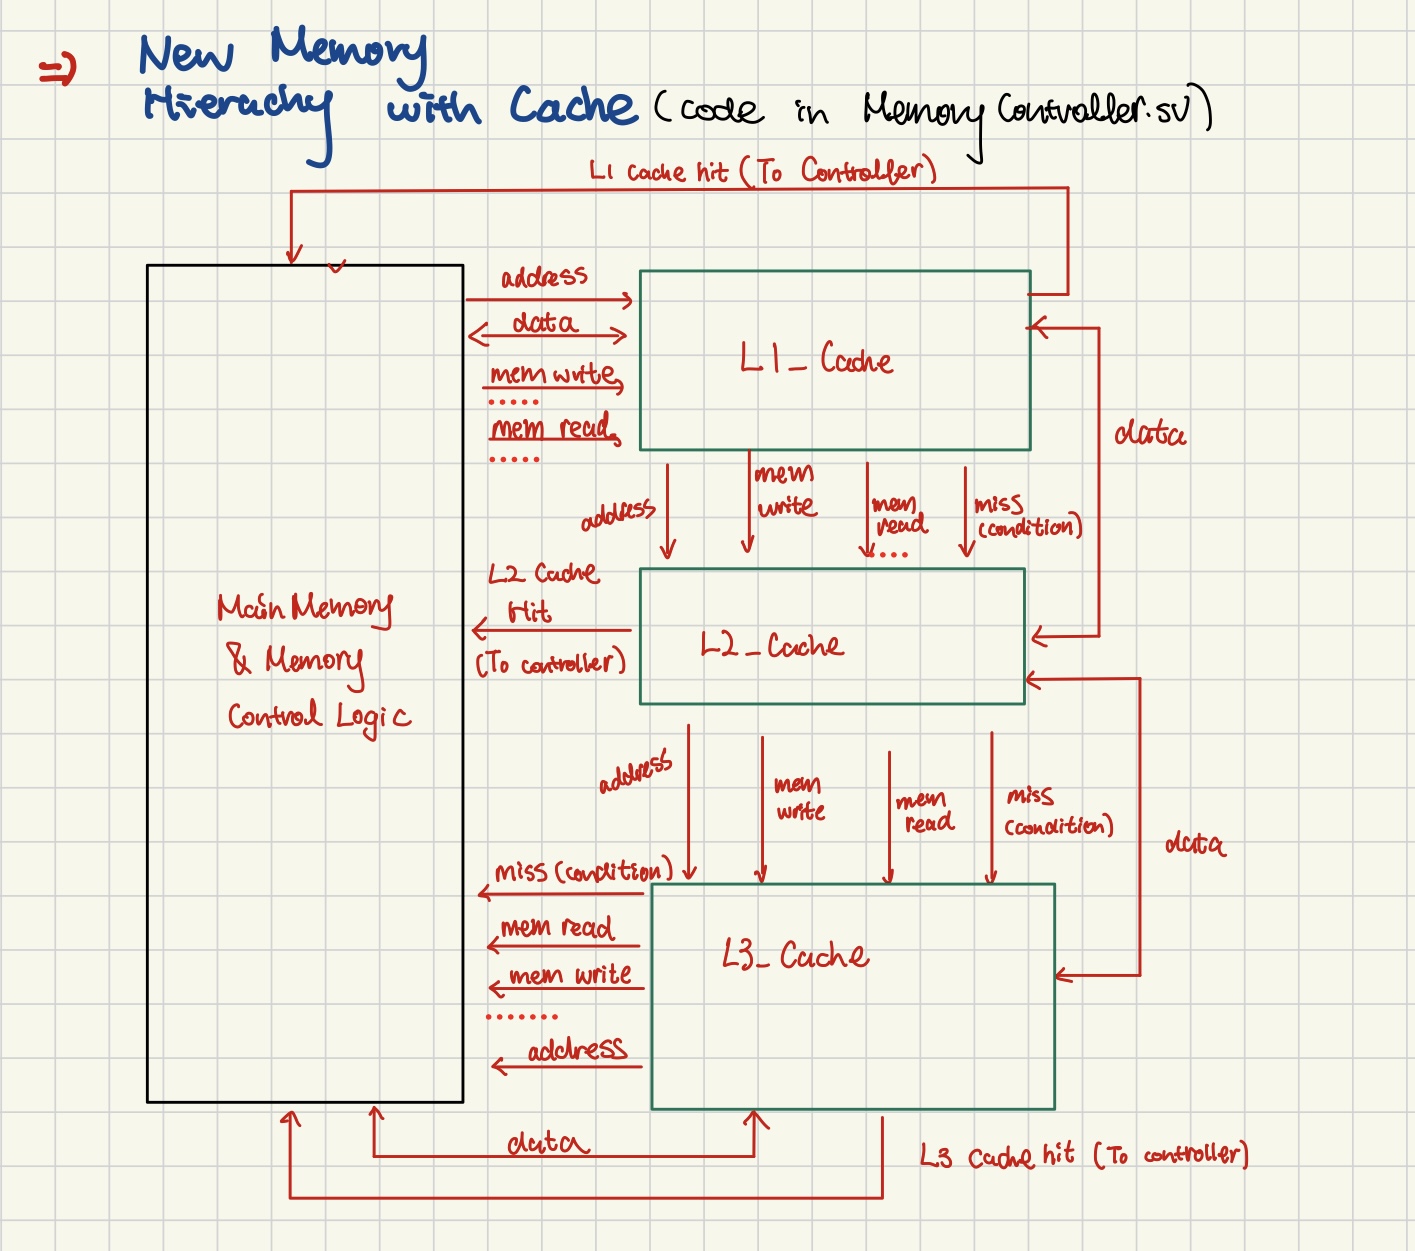 => New Memory
Hierachy with Cache (code in Memory Controller.sv)
L1 cache hit (To Controller)
address
data
mem write
mem read
L1_Cache
data
address
mem
write
mem
read
miss
(condition)
L2 Cache
Hit
(To controller)
L2_Cache
Main Memory
& Memory
Control Logic
address
mem
write
mem
read
miss
(condition)
data
miss (condition)
mem read
mem write
address
L3_Cache
data
L3 cache hit (To controller)